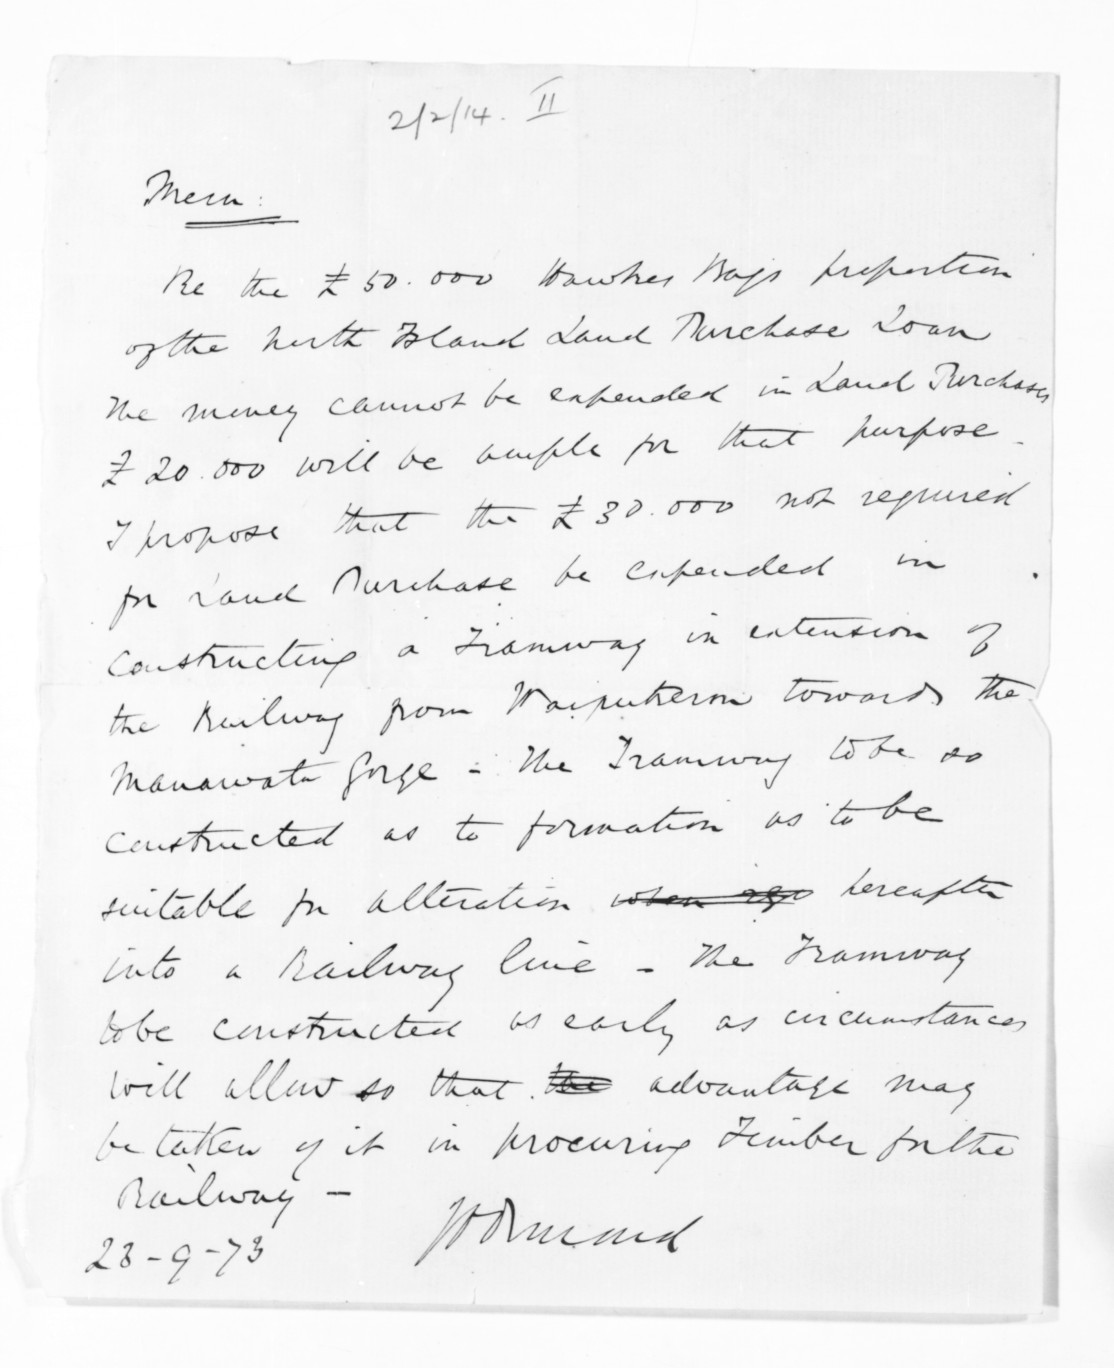 2/2/14. II
Mem:
Re the £50.000 Hawkes Bays proportion
of the North Island Land Purchase Loan
The money cannot be expended in Land Purchases
£20.000 will be ample for that purpose -
I propose that the £30.000 not required
for Land Purchase be expended in
constructing a Tramway in extension of
the Railway from Waipukurau towards the
Manawatu Gorge - The Tramway to be so
constructed as to formation as to be
suitable for alteration when hereafter
into a Railway line - The Tramway
to be constructed as early as circumstances
will allow so that the advantage may
be taken of it in procuring Timber for the
Railway -
23-9-73 JDOrmond